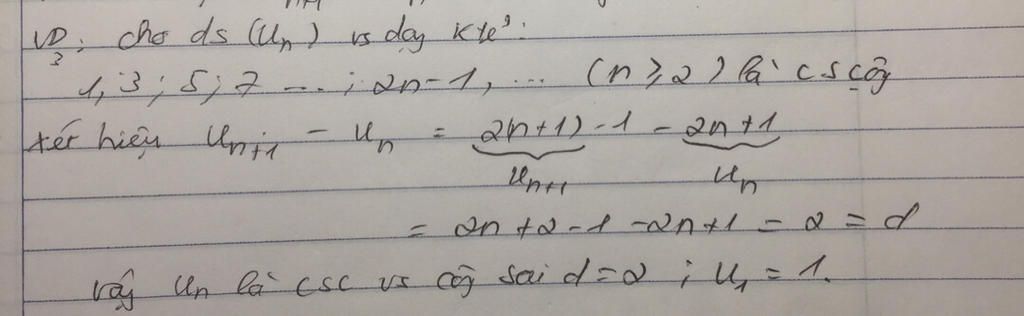 VD3: cho ds (Un) vs dạng ktế:
1; 3; 5; 7 ... ; 2n-1, ... (n ≥ 2) là cs cộng
xét hiệu Un+1 - Un = 2(n+1)-1 - 2n+1
Un+1 Un
= 2n+2-1-2n+1 = 2 = d
vậy Un là csc vs công sai d=2 ; U1 = 1.